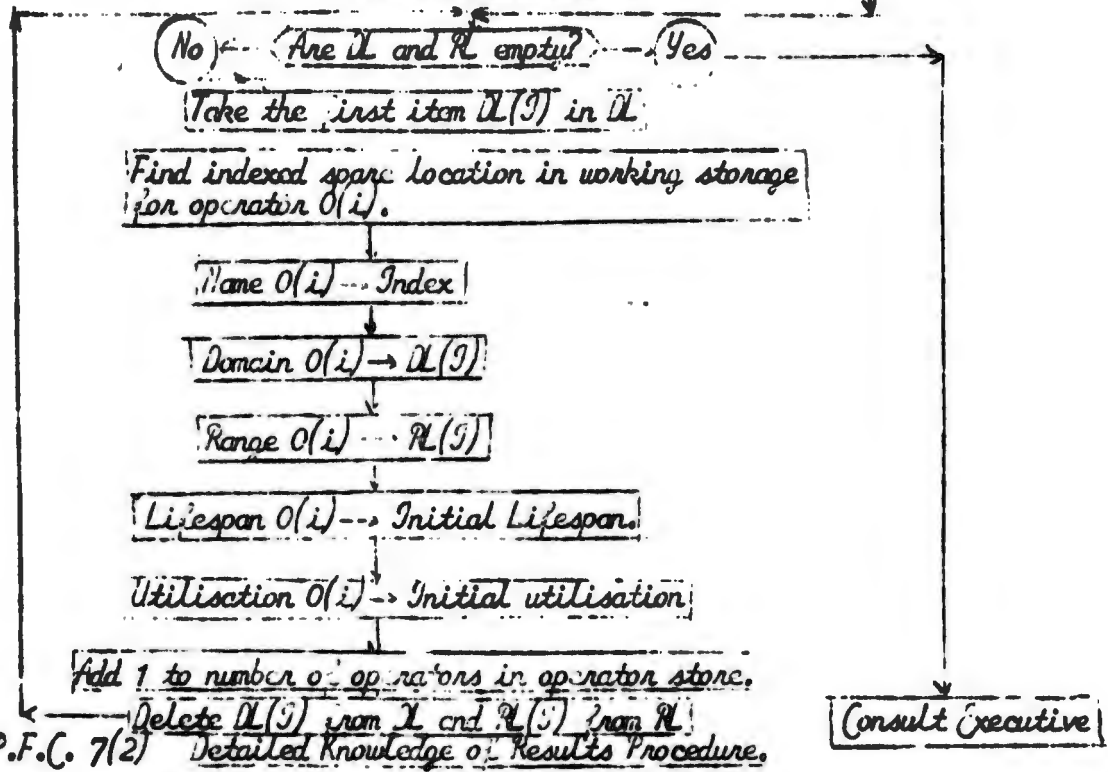 No Are DL and RL empty? Yes
Take the first item DL(I) in DL
Find indexed spare location in working storage
for operator O(i).
Name O(i) → Index
Domain O(i) → DL(I)
Range O(i) → RL(I)
Lifespan O(i) → Initial Lifespan.
Utilisation O(i) → Initial utilisation
Add 1 to number of operators in operator store.
Delete DL(I) from DL and RL(I) from RL
Consult Executive
P.F.C. 7(2) Detailed Knowledge of Results Procedure.